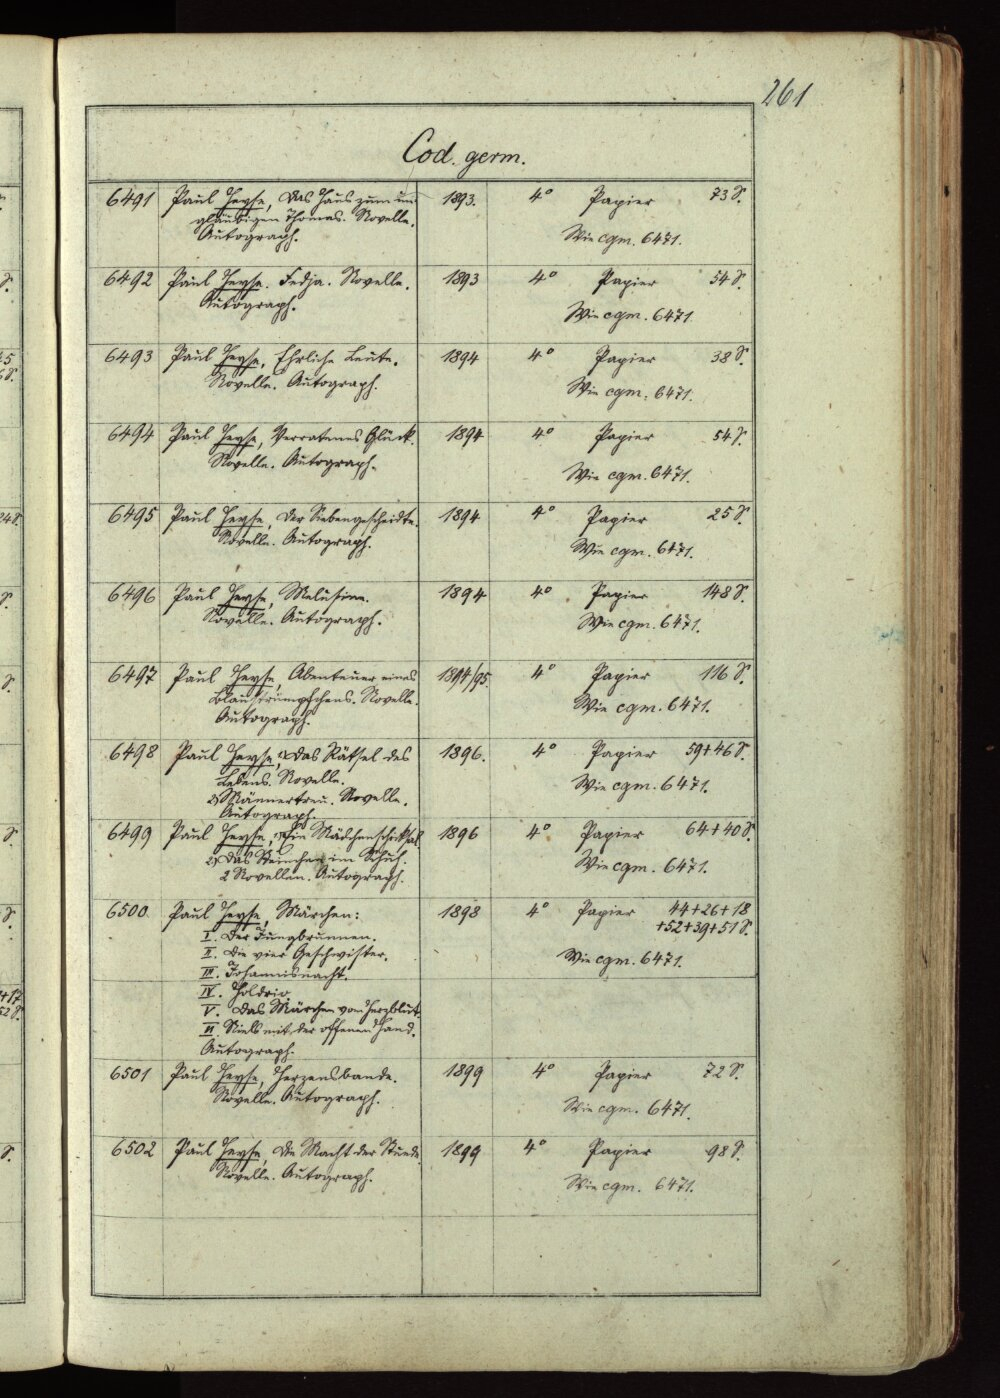 261
Cod. germ.
6491 Paul Heyse, Das Haus zum un- 1893. 4° Papier 73 S.
gläubigen Thomas. Novelle.
Autograph. Wie cgm. 6471.
6492 Paul Heyse. Fedja. Novelle. 1893 4° Papier 54 S.
Autograph. Wie cgm. 6471.
6493 Paul Heyse, Ehrliche Leute. 1894 4° Papier 38 S.
Novelle. Autograph. Wie cgm. 6471.
6494 Paul Heyse, Verratenes Glück. 1894 4° Papier 54 S.
Novelle. Autograph. Wie cgm. 6471.
6495 Paul Heyse, Der Siebengescheidte. 1894 4° Papier 25 S.
Novelle. Autograph. Wie cgm. 6471.
6496 Paul Heyse, Melusine. 1894 4° Papier 148 S.
Novelle. Autograph. Wie cgm. 6471.
6497 Paul Heyse, Abenteuer eines 1894/95. 4° Papier 116 S.
Blaustrümpfchens. Novelle. Wie cgm. 6471.
Autograph.
6498 Paul Heyse, 1) Das Rätsel des 1896. 4° Papier 59+46 S.
Lebens. Novelle. Wie cgm. 6471.
2) Männertreu. Novelle.
Autograph.
6499 Paul Heyse, 1) Ein Mädchenschicksal 1896 4° Papier 64+40 S.
2) Das Steinchen im Schuh. Wie cgm. 6471.
2 Novellen. Autograph.
6500 Paul Heyse, Märchen: 1898 4° Papier 44+26+18
I. Der Jungbrunnen. +52+39+51 S.
II. Die vier Geschwister. Wie cgm. 6471.
III. Johannisnacht.
IV. Holdrio
V. Das Märchen vom Herzblut
VI. Niels mit der offenen Hand.
Autograph.
6501 Paul Heyse, Herzensbande. 1899 4° Papier 72 S.
Novelle. Autograph. Wie cgm. 6471.
6502 Paul Heyse, Die Macht der Stunde. 1899 4° Papier 98 S.
Novelle. Autograph. Wie cgm. 6471.